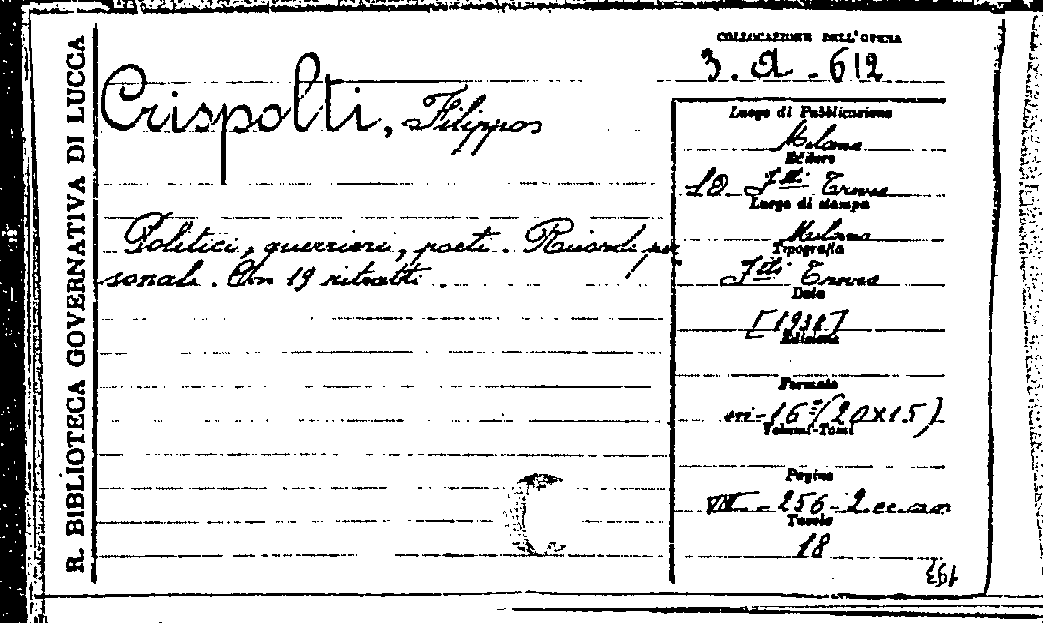 R. BIBLIOTECA GOVERNATIVA DI LUCCA
COLLOCAZIONE DELL'OPERA
3. a - 612
Crispolti, Filippo
Politici, guerrieri, poeti. Ricordi per
sonali. Con 19 ritratti.
Luogo di Pubblicazione
Milano
Editore
F.lli Treves
Luogo di stampa
Milano
Tipografia
F.lli Treves
Data
[1938]
Edizione
Formato
in-16° (20x15)
Volumi-Tomi
Pagine
VII - 256 - 2
Tavole
18
193